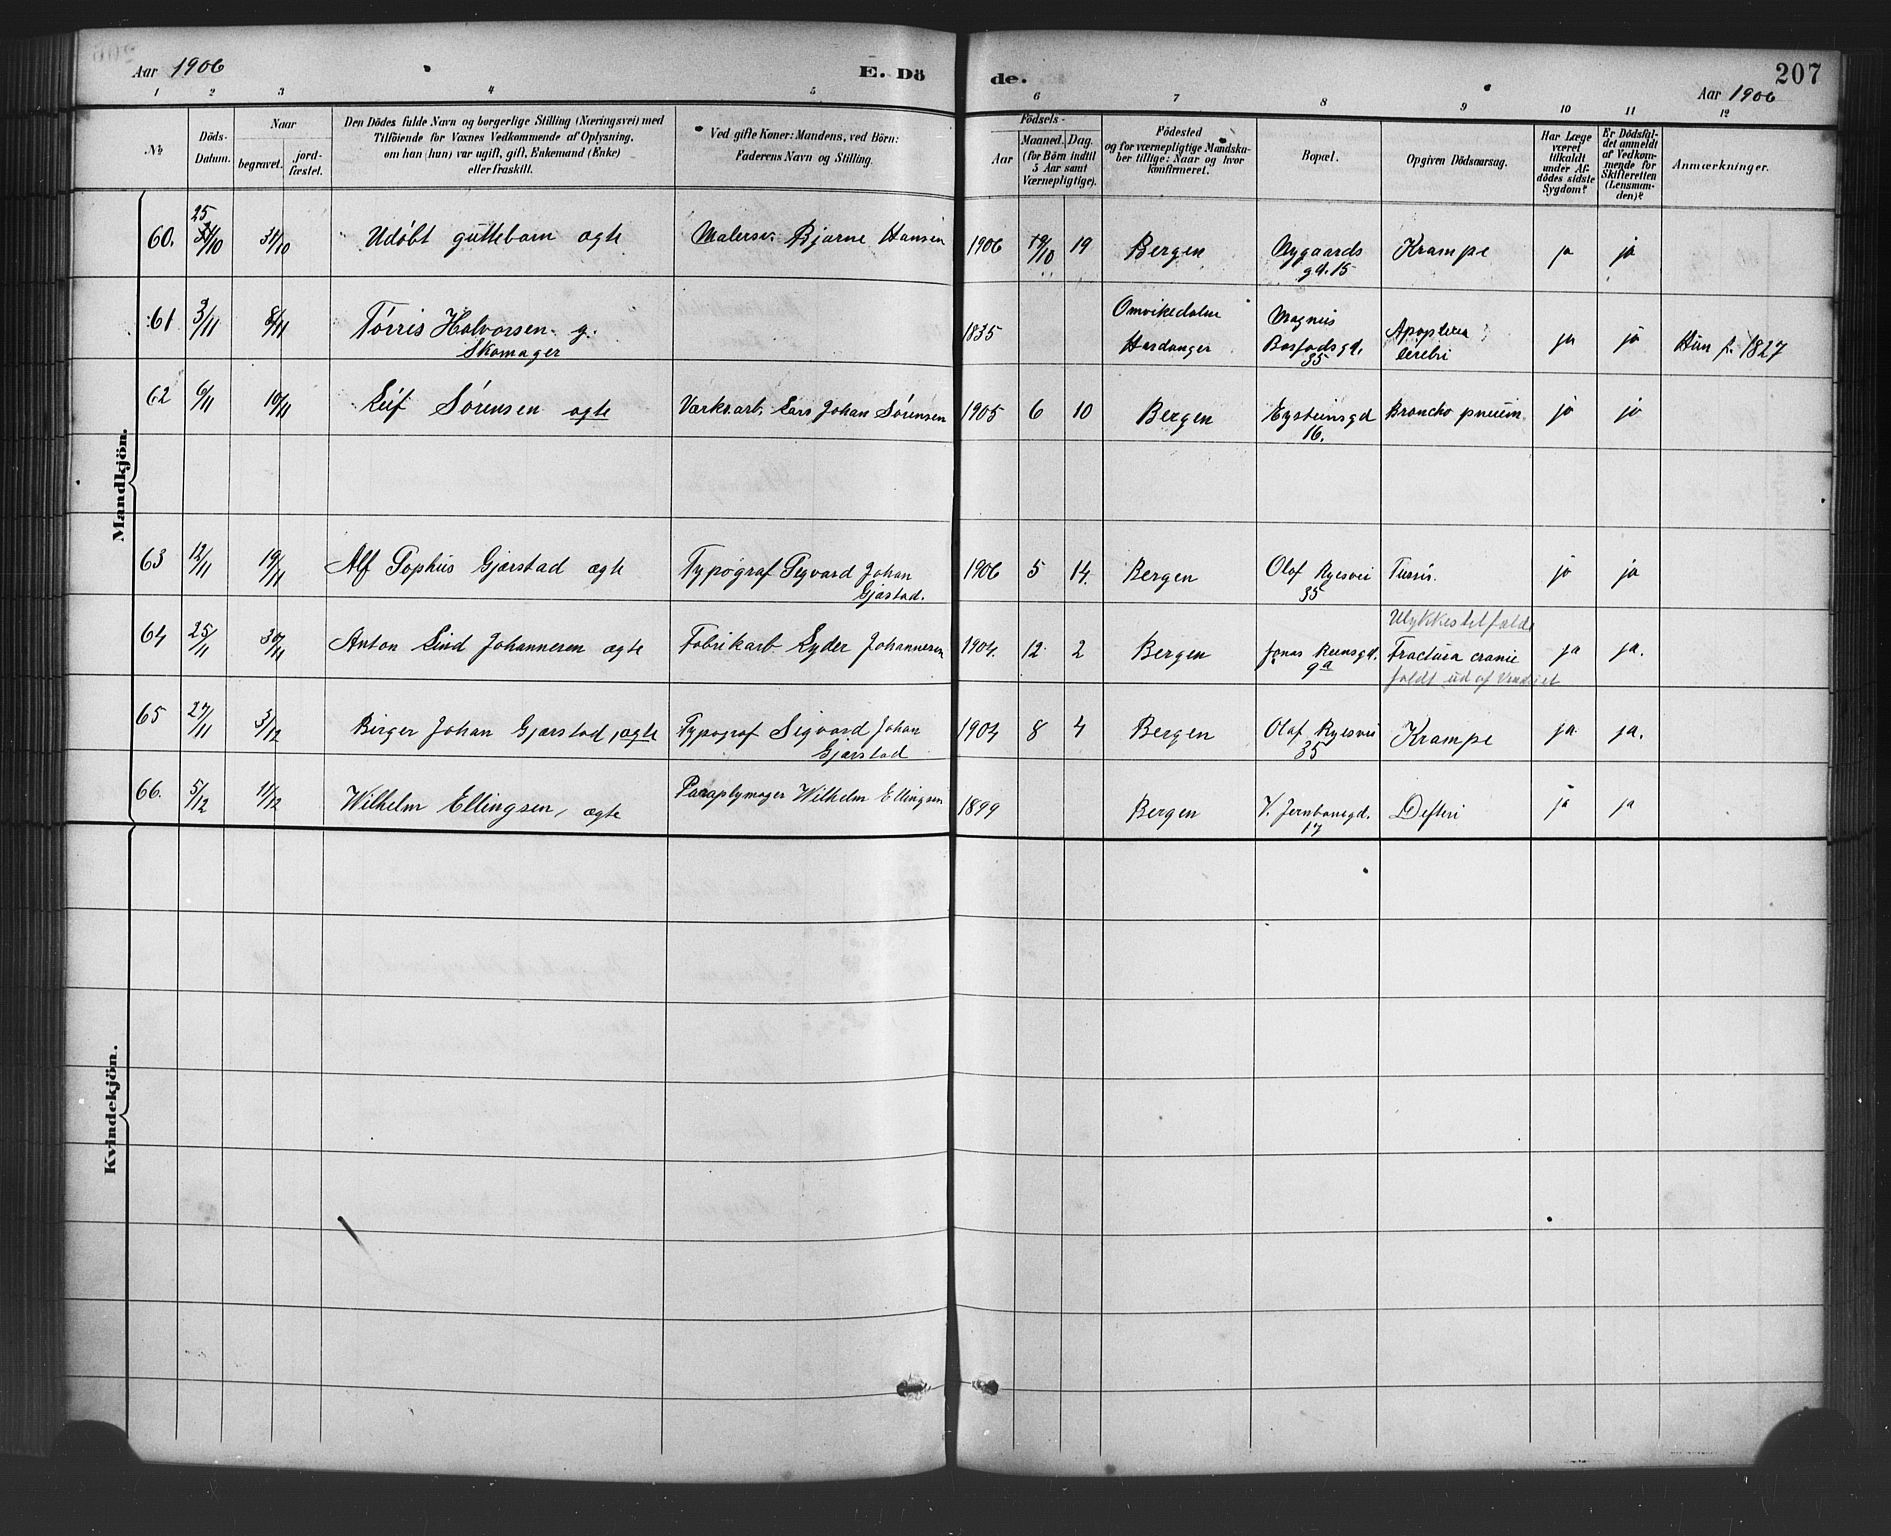 Aar 1906
E. Dö
de.
Aar 1906
207
1 2 3 4 5 6 7 8 9 10 11 12
№
Döds-
Datum.
Naar
begravet.
jord-
fæstet.
Den Dödes fulde Navn og borgerlige Stilling (Næringsvei) med
Tilföiende for Voxnes Vedkommende af Oplysning,
om han (hun) var ugift, gift, Enkemand (Enke)
eller fraskilt.
Ved gifte Koner: Mandens, ved Börn:
Faderens Navn og Stilling.
Födsels-
Aar
Maaned. Dag.
(for Börn indtil
5 Aar samt
Værnepligtige).
Födested
og for værnepligtige Mandska-
ber tillige: Naar og hvor
konfirmeret.
Bopæl.
Opgiven Dödsaarsag.
Har Læge
været
tilkaldt
under Af-
dödes sidste
Sygdom?
Er Dödsfal-
det anmeldt
af Vedkom-
mende for
Skifteretten
(Lensman-
den)?
Anmærkninger.
Mandkjön.
25
60. /10 31/10 Udöbt guttebarn ægte Malersv. Bjarne Hansen 1906 19/10 19 Bergen Nygaards
gd. 15 Krampe ja ja
61 3/11 8/11 Torris Halvorsen g.
Skomager 1835 Omvikedalen
Hardanger Magnus
Barfodsgd.
35 Apoplexia
cerebri ja ja Hun f. 1827
62 6/11 10/11 Leif Sørensen ægte Værksarb. Lars Johan Sørensen 1905 6 10 Bergen Eysteinsgd
16. Broncho pneum. ja ja
63 12/11 19/11 Alf Sophus Gjærstad ægte Typograf Sigvard Johan
Gjæstad. 1906 5 14. Bergen Olaf Ryesvei
35 Tussis. ja ja
64 25/11 30/11 Anton Lind Johannesen ægte Fabrikarb. Lyder Johannesen 1904. 12 2 Bergen Jonas Reinsgd.
9a Ulykkestilfælde
Fractura cranie
faldt ud af Vinduet ja ja.
65 27/11 3/12 Birger Johan Gjærstad, ægte Typograf Sigvard Johan
Gjærstad 1904 8 4 Bergen Olaf Ryesvei
35 Krampe ja. ja.
66. 5/12 11/12 Wilhelm Ellingsen, ægte Paraplymager Wilhelm Ellingsen 1899 Bergen V. Jernbanegd.
17 Defteri ja ja
Kvindekjön.